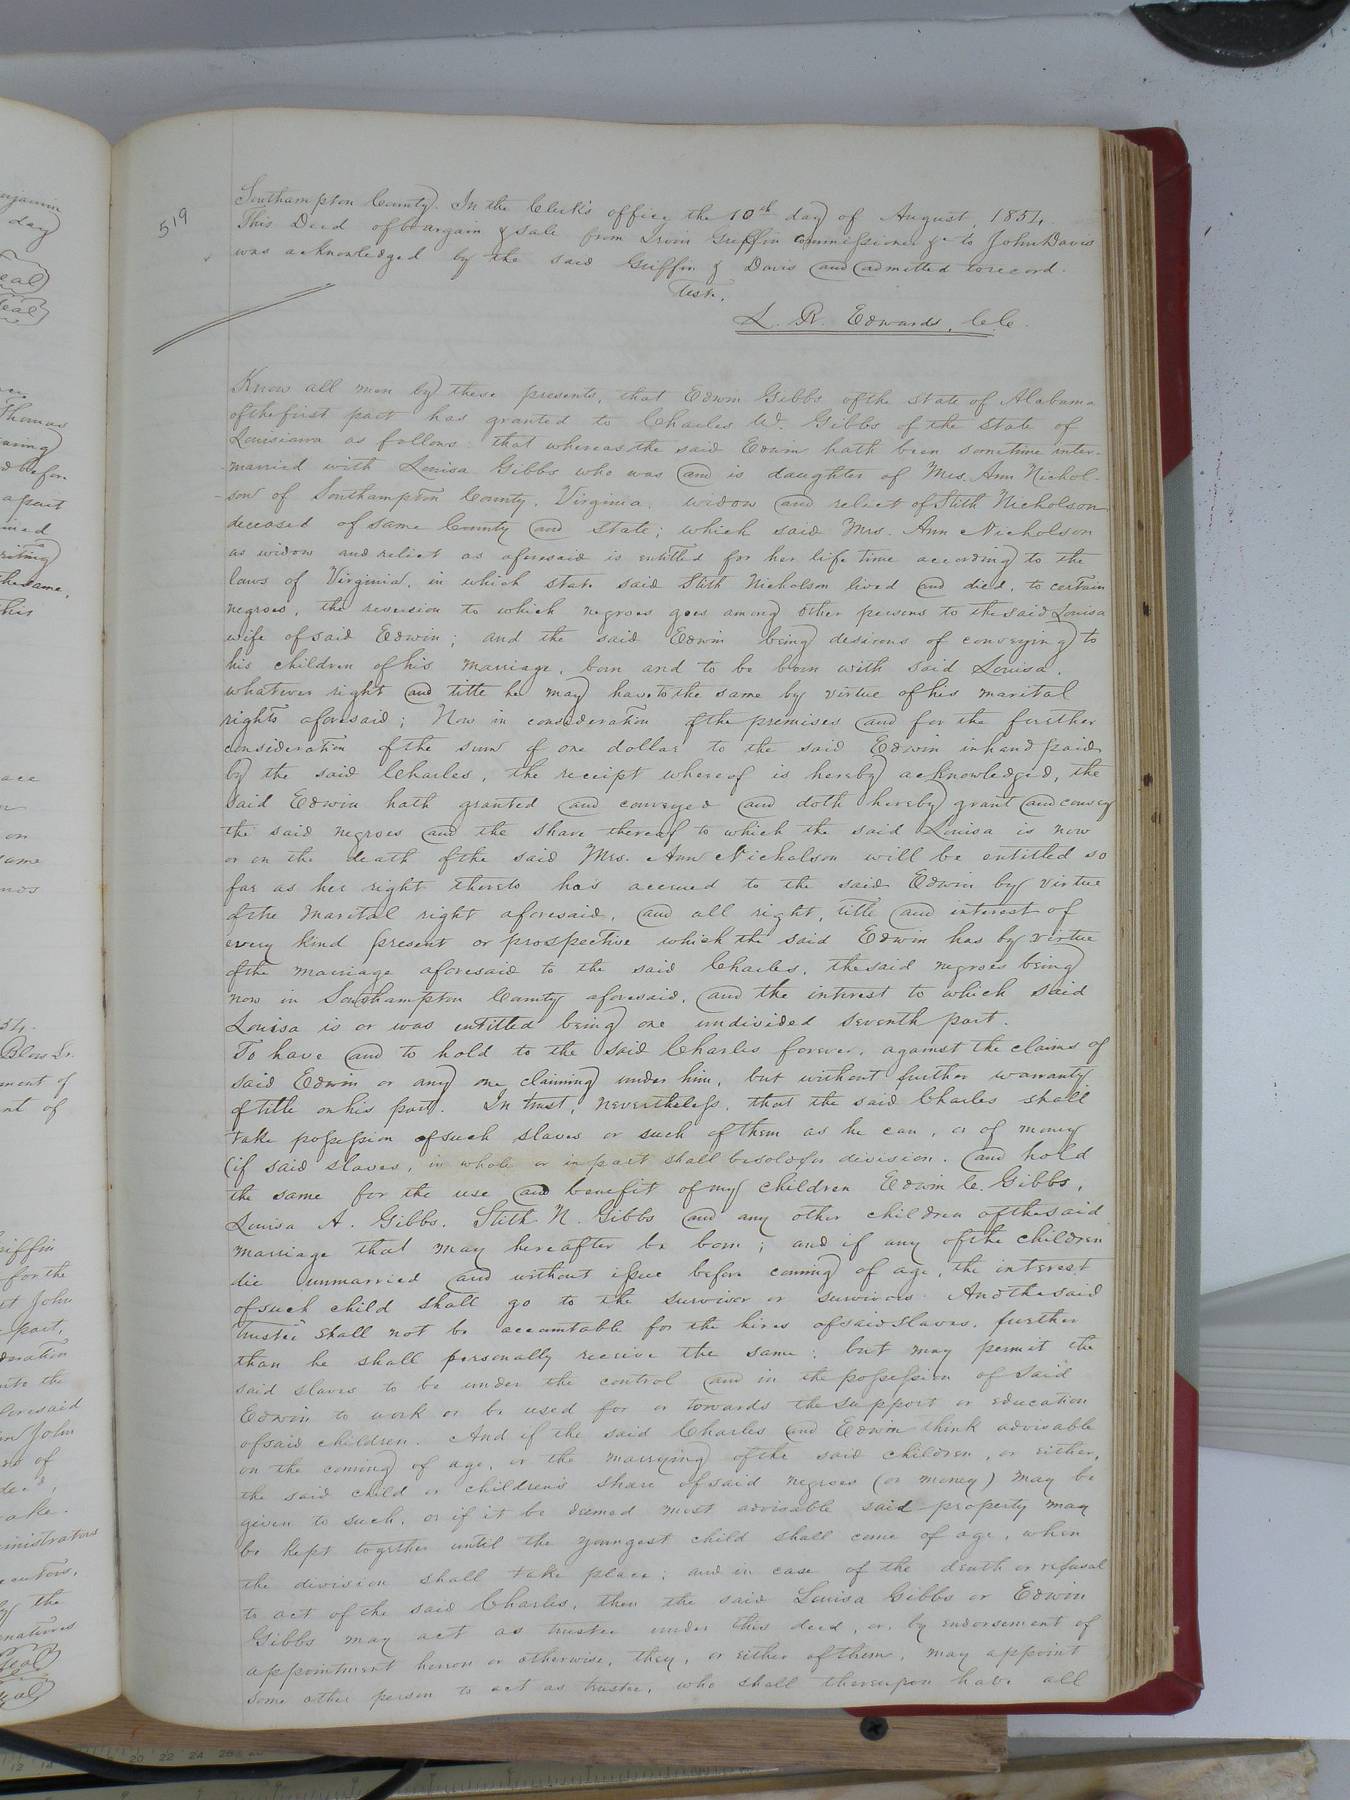 519
Southampton County. In the Clerk's office the 10th day of August, 1854.
This Deed of bargain & sale from Irvin Griffin commissioner &c to John Davis
was acknowledged by the said Griffin & Davis and admitted to record.
Test,
L. R. Edwards, C.C.
Know all men by these presents, that Edwin Gibbs of the State of Alabama
of the first part has granted to Charles W. Gibbs of the State of
Louisiana as follows: that whereas the said Edwin hath been sometime inter-
-married with Louisa Gibbs who was and is daughter of Mrs. Ann Nichol-
-son of Southampton County, Virginia, widow and relict of Stith Nicholson
deceased of same County and State; which said Mrs. Ann Nicholson
as widow and relict as aforesaid is entitled for her life time according to the
laws of Virginia, in which state said Stith Nicholson lived and died, to certain
negroes, the reversion to which negroes goes among other persons to the said Louisa
wife of said Edwin; and the said Edwin being desirous of conveying to
his children of his marriage, born and to be born with said Louisa,
whatever right and title he may have to the same by virtue of his marital
rights aforesaid; Now in consideration of the premises and for the further
consideration of the sum of one dollar to the said Edwin in hand paid
by the said Charles, the receipt whereof is hereby acknowledged, the
said Edwin hath granted and conveyed and doth hereby grant and convey
the said negroes and the share thereof to which the said Louisa is now
or on the death of the said Mrs. Ann Nicholson will be entitled so
far as her right thereto has accrued to the said Edwin by virtue
of the marital right aforesaid, and all right, title and interest of
every kind present or prospective which the said Edwin has by virtue
of the marriage aforesaid to the said Charles, the said negroes being
now in Southampton County aforesaid, and the interest to which said
Louisa is or was entitled being one undivided seventh part.
To have and to hold to the said Charles forever, against the claims of
said Edwin or any one claiming under him, but without further warranty
of title on his part. In trust, nevertheless, that the said Charles shall
take possession of such slaves or such of them as he can, or of money
(if said slaves, in whole or in part shall be sold for division. and hold
the same for the use and benefit of my children Edwin C. Gibbs,
Louisa A. Gibbs, Stith N. Gibbs and any other children of the said
marriage that may hereafter be born; and if any of the children
die unmarried and without issue before coming of age, the interest
of such child shall go to the survivor or survivors. And the said
trustee shall not be accountable for the hires of said slaves, further
than he shall personally receive the same; but may permit the
said slaves to be under the control and in the possession of said
Edwin to work or be used for or towards the support or education
of said children. And if the said Charles and Edwin think advisable
on the coming of age, or the marrying of the said children, or either,
the said child or children's share of said negroes (or money) may be
given to such, or if it be deemed most advisable said property may
be kept together until the youngest child shall come of age, when
the division shall take place; and in case of the death or refusal
to act of the said Charles, then the said Louisa Gibbs or Edwin
Gibbs may act as trustee under this deed, or, by endorsement of
appointment hereon or otherwise, they, or either of them, may appoint
some other person to act as trustee, who shall thereupon have all